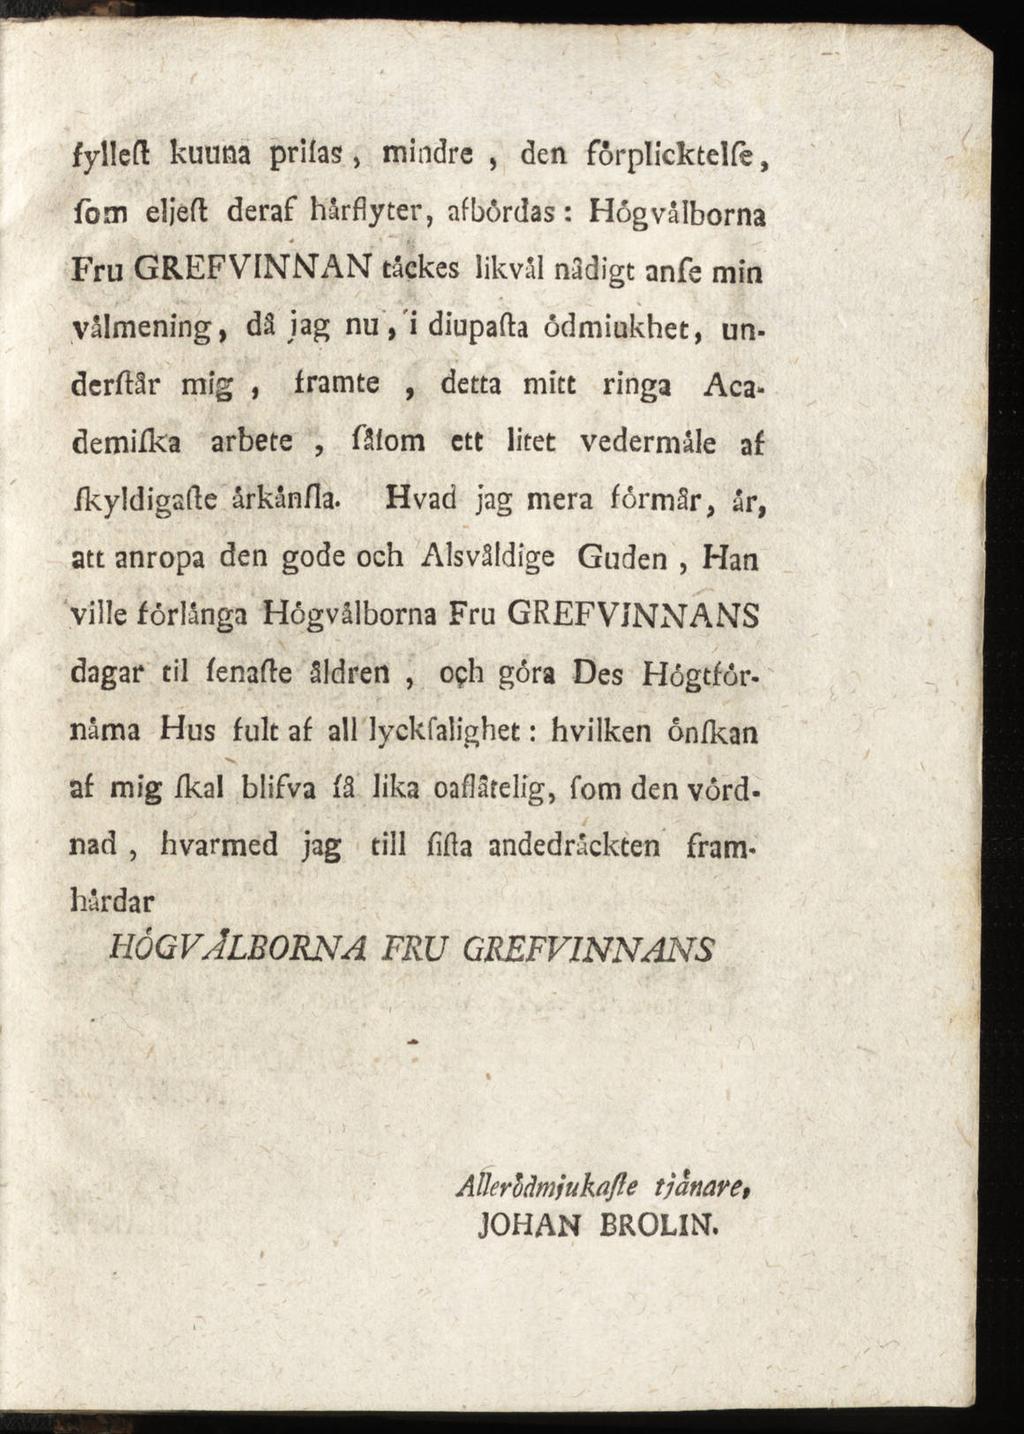 fylleſt kuuna priſas, mindre, den fórplicktelſe,
ſom eljeſt deraf hårflyter, afbórdas: Hógvålborna
Fru GREFVINNAN tåckes likvål nådigt anſe min
vålmening, då jag nu, i diupaſta ódmiukhet, un-
derſtår mig, framte, detta mitt ringa Aca-
demiſka arbete, ſåſom ett litet vedermåle af
ſkyldigaſte årkånſla. Hvad jag mera fórmår, år,
att anropa den gode och Alsvåldige Guden, Han
ville fórlånga Hógvålborna Fru GREFVINNANS
dagar til ſenaſte åldren, och góra Des Hógtfór-
nåma Hus fult af all lyckſalighet: hvilken ónſkan
af mig ſkal blifva ſå lika oaflåtelig, ſom den vórd-
nad, hvarmed jag till ſiſta andedråckten fram-
hårdar
HÓGVÅLBORNA FRU GREFVINNANS
Alleródmjukaſte tjånare,
JOHAN BROLIN.